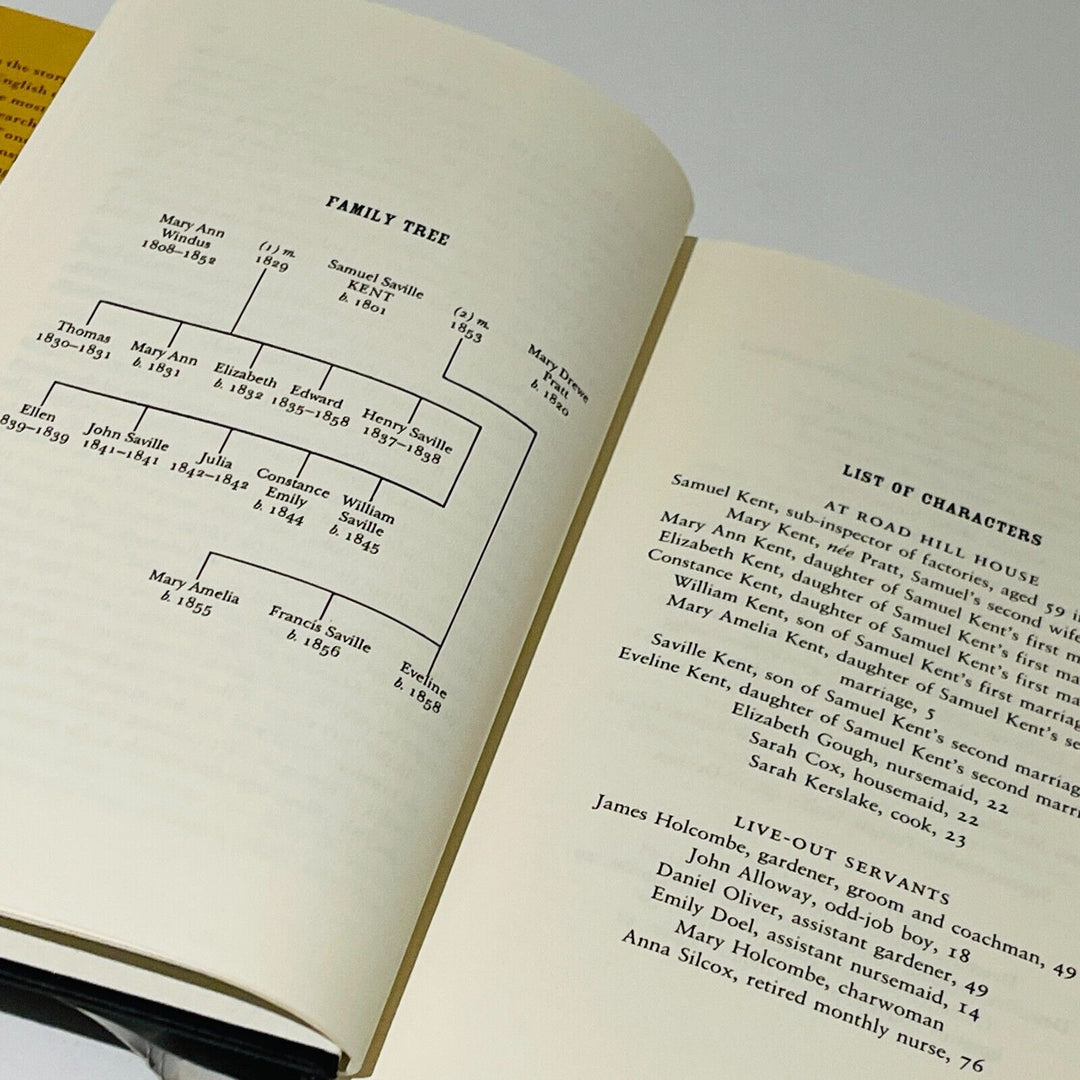 the story
English
most
FAMILY TREE
Mary Ann
Windus
1808–1852
(1) m.
1829
Samuel Saville
KENT
b. 1801
(2) m.
1853
Mary Drewe
Pratt
b. 1820
Thomas
1830–1831
Mary Ann
b. 1831
Elizabeth
b. 1832
Edward
1835–1858
Henry Saville
1837–1838
Ellen
839–1839
John Saville
1841–1841
Julia
1842–1842
Constance
Emily
b. 1844
William
Saville
b. 1845
Mary Amelia
b. 1855
Francis Saville
b. 1856
Eveline
b. 1858
LIST OF CHARACTERS
AT ROAD HILL HOUSE
Samuel Kent, sub-inspector of factories, aged 59
Mary Kent, née Pratt, Samuel's second wife
Mary Ann Kent, daughter of Samuel Kent's first
Elizabeth Kent, daughter of Samuel Kent's first
Constance Kent, daughter of Samuel Kent's first
William Kent, son of Samuel Kent's first
Mary Amelia Kent, daughter of Samuel Kent's
marriage, 5
Saville Kent, son of Samuel Kent's second
Eveline Kent, daughter of Samuel Kent's second
Elizabeth Gough, nursemaid, 22
Sarah Cox, housemaid, 22
Sarah Kerslake, cook, 23
LIVE-OUT SERVANTS
James Holcombe, gardener, groom and coachman, 49
John Alloway, odd-job boy, 18
Daniel Oliver, assistant gardener, 49
Emily Doel, assistant nursemaid, 14
Mary Holcombe, charwoman
Anna Silcox, retired monthly nurse, 76